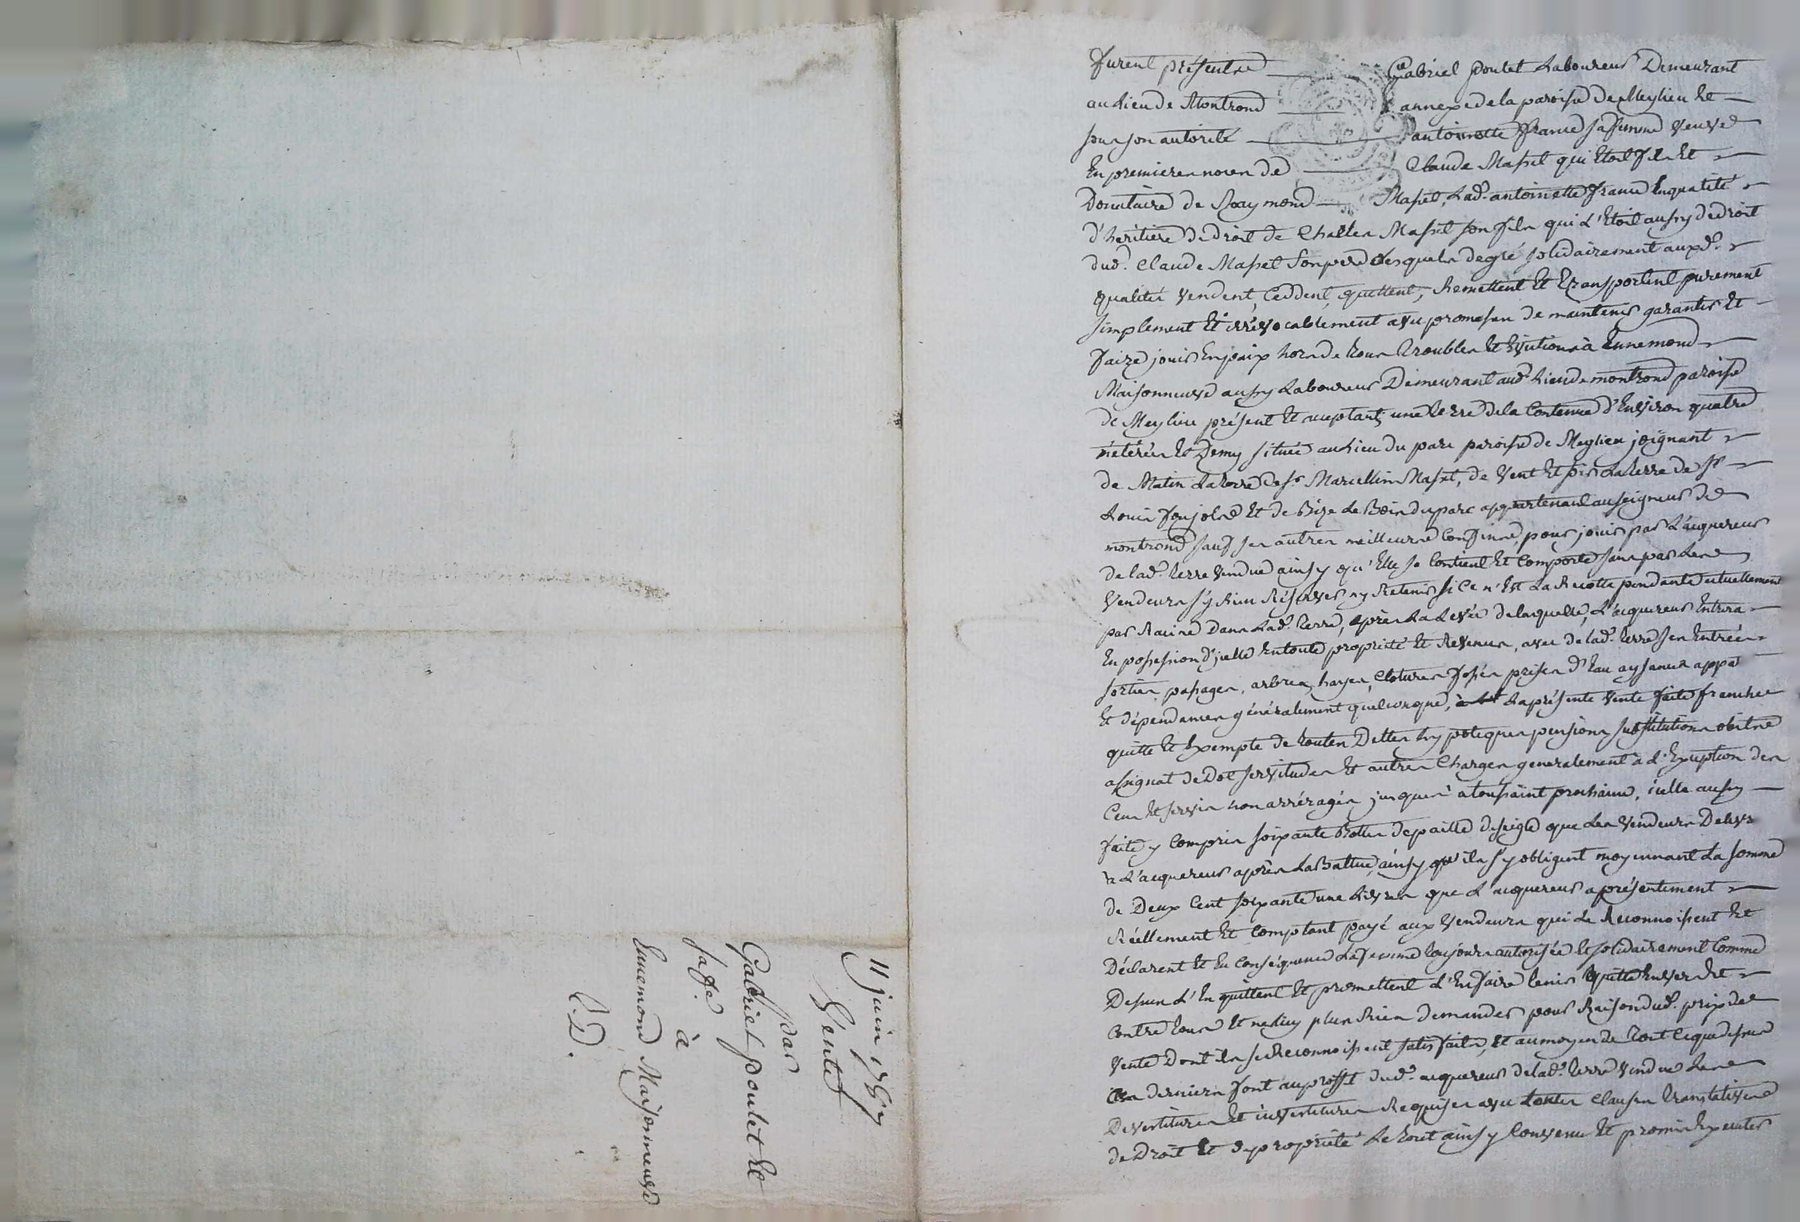 furent présents Gabriel poulet Laboureur Demeurant
au Lieu de Montrond annexe de la paroise de Meylieu Et
sous son autorité antoinette france sa femme veuve
En premieres noces de Claude Massel qui Etoit fils Et
Donataire de Raymond Massel, Lad. antoinette france En qualité
d'heritiere de Droit de Charles Massel son fils qui L'Etoit aussy de droit
dud. Claude Massel son pere Lesquels de gré solidairement auxd.
qualités vendent, Ceddent, quittent, Remettent Et transportent purement
simplement Et irrévocablement avec promesse de maintenir garantir Et
faire jouir En paix hors de tous troubles Et Evictions à Ennemond
Maisonneuve aussy Laboureur Demeurant aud. Lieu de montrond paroise
de Meylieu présent Et acceptant, une terre de la Contenue d'Environ quatre
méterées Et Demy située au Lieu du parc paroise de Meylieu joignant
de Matin La terre de Sr Marcellin Massel, de vent Et soir La terre de Sr
Louis Et de Bize Le Bois du parc appartenant au seigneur de
montrond sauf ses autres meilleurs Confins, pour jouir par L'acquereur
de lad. terre vendue ainsy qu'Elle se Contient Et Comporte sans par Les
vendeurs s'y Rien Réserver ny Retenir si Ce n'Est La Recolte pendante actuellement
par Racine Dans Lad. terre, après La Levée de laquelle, L'acquereur Entrera
En possession d'icelle En toute propriété Et Revenus, avec de lad. terre ses Entrées
sorties passages, arbres, hayes, clotures fossés prises d'Eau aysances appces
Et dépendances généralement quelconques, La présente vente faite franche
quitte Et Exempte de toutes Dettes hypoteques pensions substitutions obitres
assignat de Dot servitudes Et autres Charges generalement à L'Exception des
Cens Et servis non arréragés jusques à atoussaint prochaine, icelle aussy
faite y Compris soixante Bottes de paille de seigle que Les vendeurs Delivr
à L'acquereur après La Battue, ainsy qu'ils s'y obligent moyennant La somme
de Deux Cent soixante une Livres que L'acquereur a présentement
Réellement Et Comptant payé aux vendeurs qui Le Reconnoissent Et
Déclarent Et En Conséquence La femme toujours autorisée Et solidairement Comme
Dessus L'En quittent Et promettent L'En faire tenir quitte Envers Et
Contre tous Et ne luy plus Rien demander pour Raison dud. prix de
vente Dont ils se Reconnoissent satisfaits, Et au moyen de tout Ce que dessus
Ces derniers font au proffit dud. acquereur de lad. terre vendue Les
Devestitures Et investitures Requises avec toutes clauses translatives
de Droit Et de propriété Le tout ainsy Convenu Et promis Executer
11 juin 1767
Vente
par
Gabriel poulet Et
sa fe.
à
Ennemond Maisonneuve